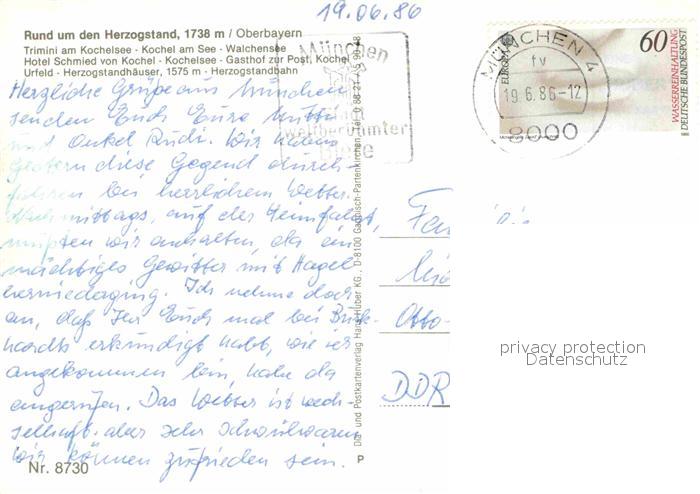 19.06.86
Rund um den Herzogstand, 1738 m / Oberbayern
Trimini am Kochelsee - Kochel am See - Walchensee
Hotel Schmied von Kochel - Kochelsee - Gasthof zur Post, Kochel
Urfeld - Herzogstandhäuser, 1575 m - Herzogstandbahn
München
weltberühmter
MÜNCHEN 4
fv
19.6.86-12
8000
EUROPA
60
WASSERREINHALTUNG
DEUTSCHE BUNDESPOST
Herzliche Grüße aus München
senden Euch Eure Mutti
und Onkel Rudi. Wir
gestern diese Gegend durch-
fahren bei herrlichem Wetter.
Nachmittags, auf der Heimfahrt,
mußten wir anhalten, da ein
mächtiges Gewitter mit Hagel
herniederging. Ich nehme doch
an, daß Ihr Euch mal bei Burk-
hardts erkundigt habt, wie ich
angekommen bin, habe da
angerufen. Das Wetter ist wech-
selhaft, aber sehr
Wir können zufrieden sein.
Otto-
DDR
Dia- und Postkartenverlag Hans Huber KG., D-8100 Garmisch-Partenkirchen, Tel. 0 88 21
P
Nr. 8730
privacy protection
Datenschutz